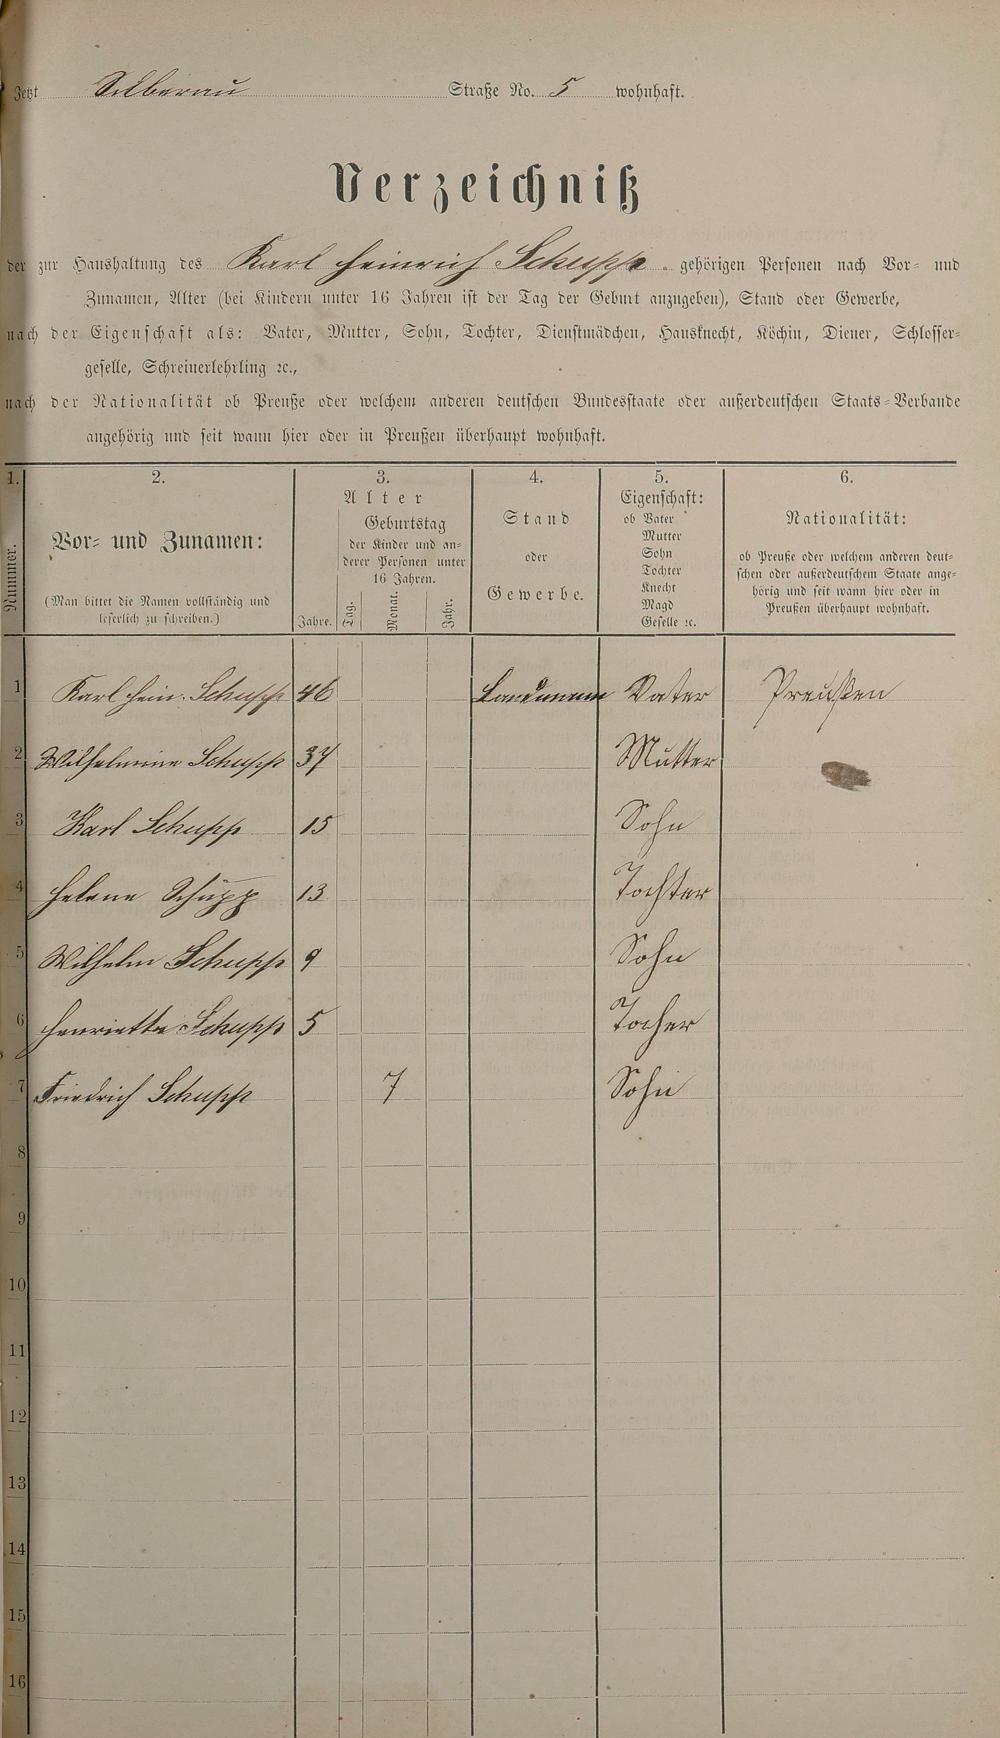 Jetzt Silberau Straße No. 5 wohnhaft.
Verzeichniß
der zur Haushaltung des Karl Heinrich Schupp gehörigen Personen nach Vor- und
Zunamen, Alter (bei Kindern unter 16 Jahren ist der Tag der Geburt anzugeben), Stand oder Gewerbe,
nach der Eigenschaft als: Vater, Mutter, Sohn, Tochter, Dienstmädchen, Hausknecht, Köchin, Diener, Schlosser-
geselle, Schreinerlehrling ꝛc.,
nach der Nationalität ob Preuße oder welchem anderen deutschen Bundesstaate oder außerdeutschen Staats-Verbande
angehörig und seit wann hier oder in Preußen überhaupt wohnhaft.
1. 2. 3. 4. 5. 6.
Nummer.
Vor- und Zunamen:
(Man bittet die Namen vollständig und
leserlich zu schreiben.)
Alter
Jahre.
Geburtstag
der Kinder und an-
derer Personen unter
16 Jahren.
Tag. Monat. Jahr.
Stand
oder
Gewerbe.
Eigenschaft:
ob Vater
Mutter
Sohn
Tochter
Knecht
Magd
Geselle ꝛc.
Nationalität:
ob Preuße oder welchem anderen deut-
schen oder außerdeutschem Staate ange-
hörig und seit wann hier oder in
Preußen überhaupt wohnhaft.
1 Karl Hein. Schupp 46 Landmann Vater Preußen
2 Wilhelmine Schupp 37 Mutter
3 Karl Schupp 15 Sohn
4 Helene Schupp 13 Tochter
5 Wilhelm Schupp 9 Sohn
6 Henriette Schupp 5 Tocher
7 Friedrich Schupp 7 Sohn
8
9
10
11
12
13
14
15
16